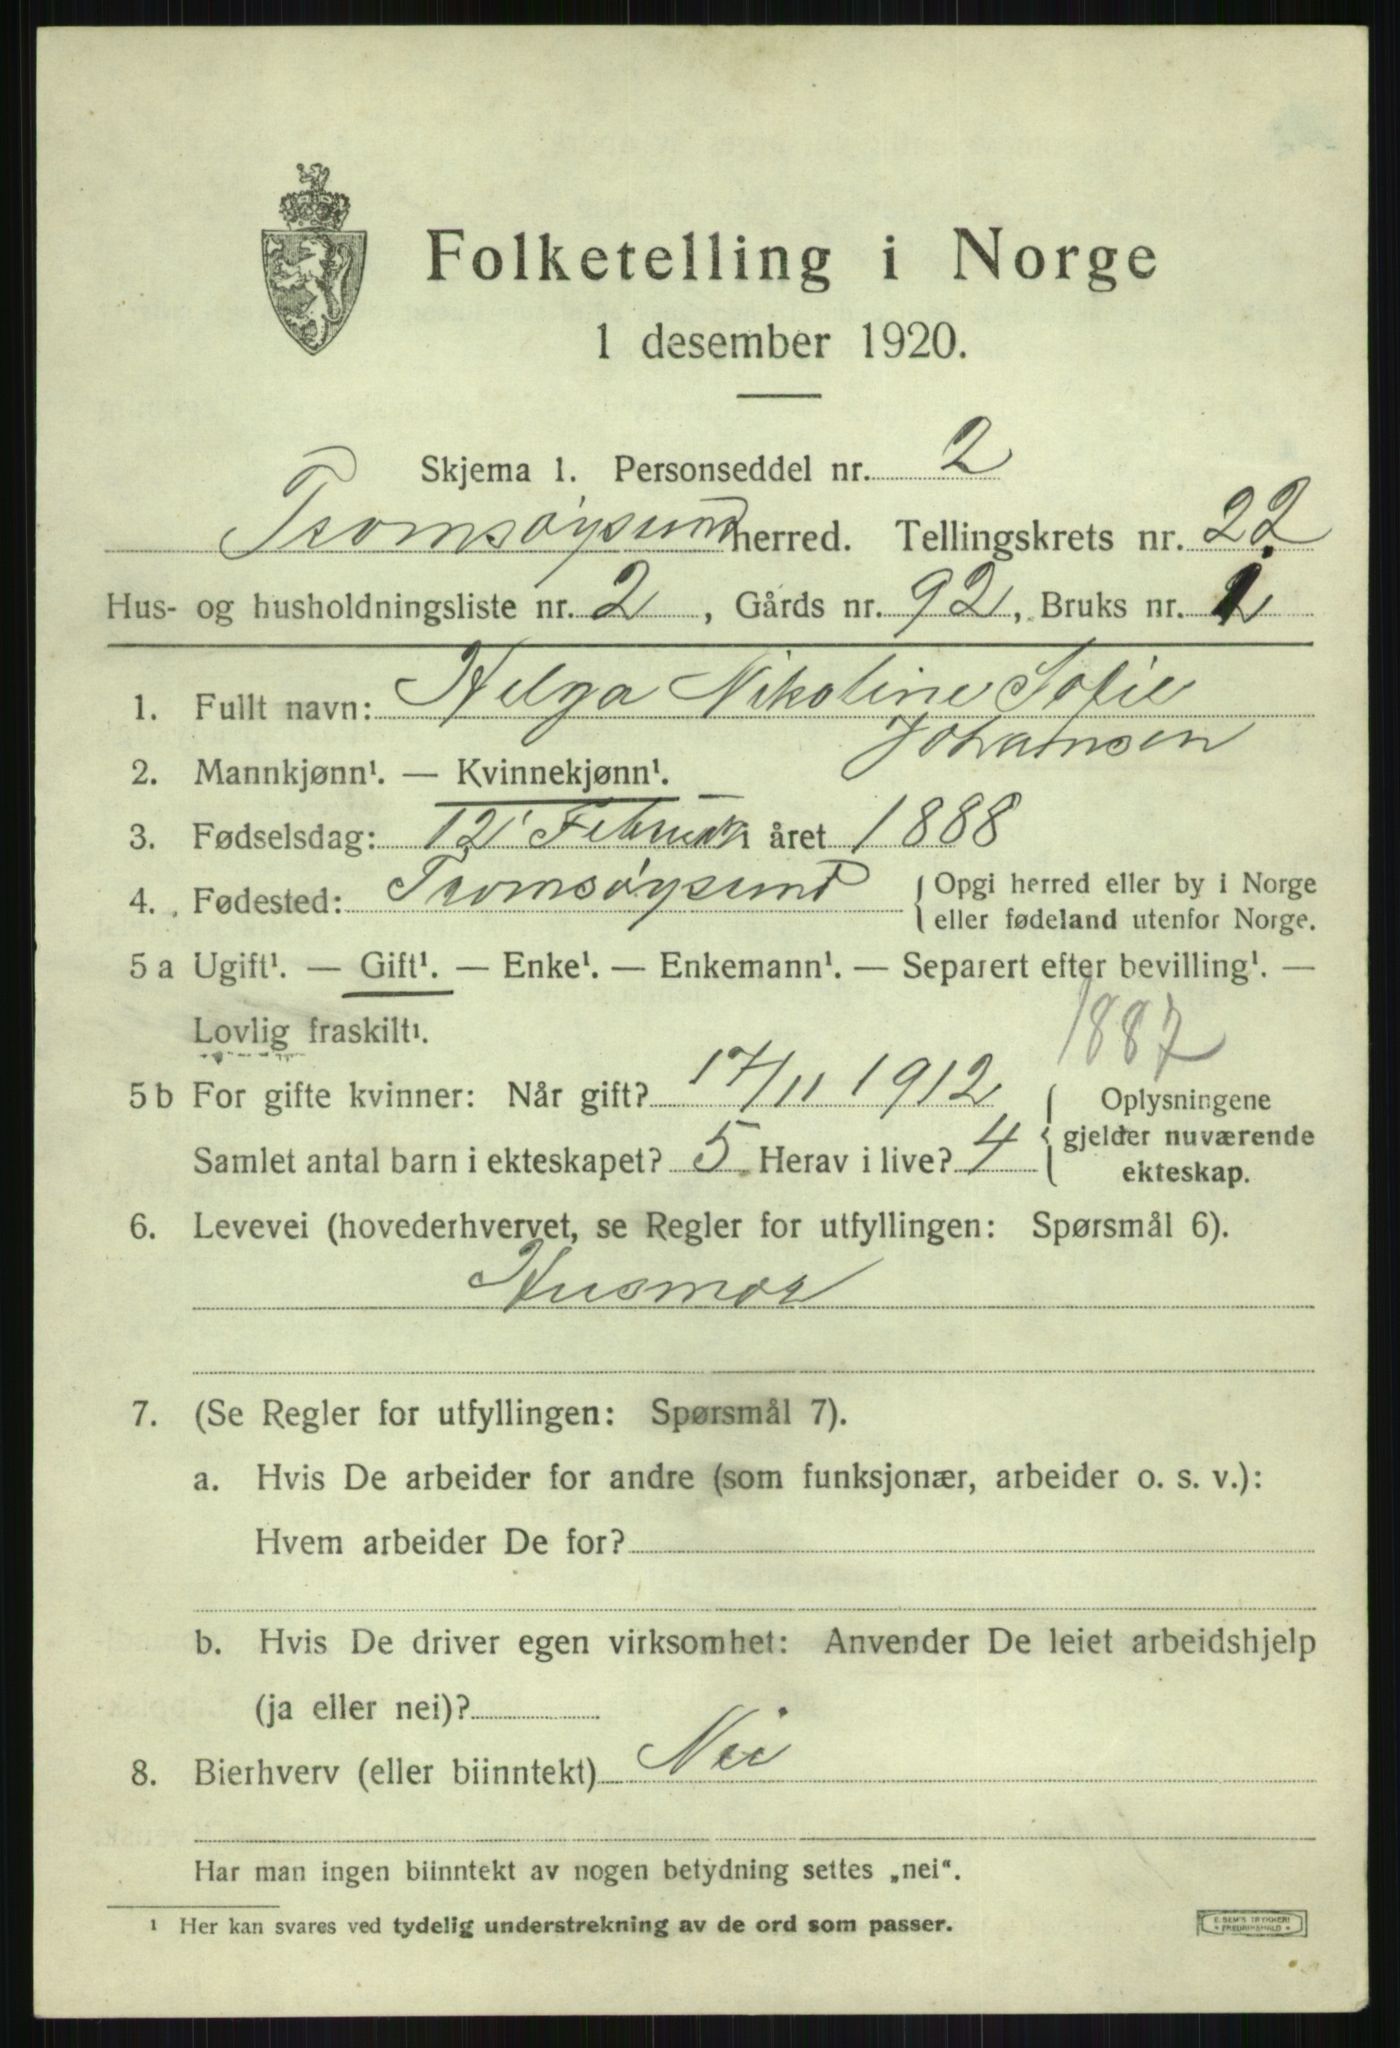 Folketelling i Norge
1 desember 1920.
Skjema 1. Personseddel nr. 2
Tromsøysund herred. Tellingskrets nr. 22.
Hus- og husholdningsliste nr. 2, Gårds nr. 92, Bruks nr.
1. Fullt navn: Helga Nikoline Sofie
Johansen
2. Mannkjønn¹. — Kvinnekjønn¹.
3. Fødselsdag: 12 Februar i året 1888
4. Fødested: Tromsøysund { Opgi herred eller by i Norge
eller fødeland utenfor Norge.
5 a Ugift¹. — Gift¹. — Enke¹. — Enkemann¹. — Separert efter bevilling¹. —
Lovlig fraskilt¹. 1887
5 b For gifte kvinner: Når gift? 17/11 1912 { Oplysningene
gjelder nuværende
Samlet antal barn i ekteskapet? 5 Herav i live? 4 ekteskap.
6. Levevei (hovederhvervet, se Regler for utfyllingen: Spørsmål 6).
Husmor
7. (Se Regler for utfyllingen: Spørsmål 7).
a. Hvis De arbeider for andre (som funksjonær, arbeider o. s. v.):
Hvem arbeider De for?
b. Hvis De driver egen virksomhet: Anvender De leiet arbeidshjelp
(ja eller nei)?
8. Bierhverv (eller biinntekt) Nei
Har man ingen biinntekt av nogen betydning settes „nei“.
¹ Her kan svares ved tydelig understrekning av de ord som passer.
E. SEM'S TRYKKERI
FREDRIKSHALD